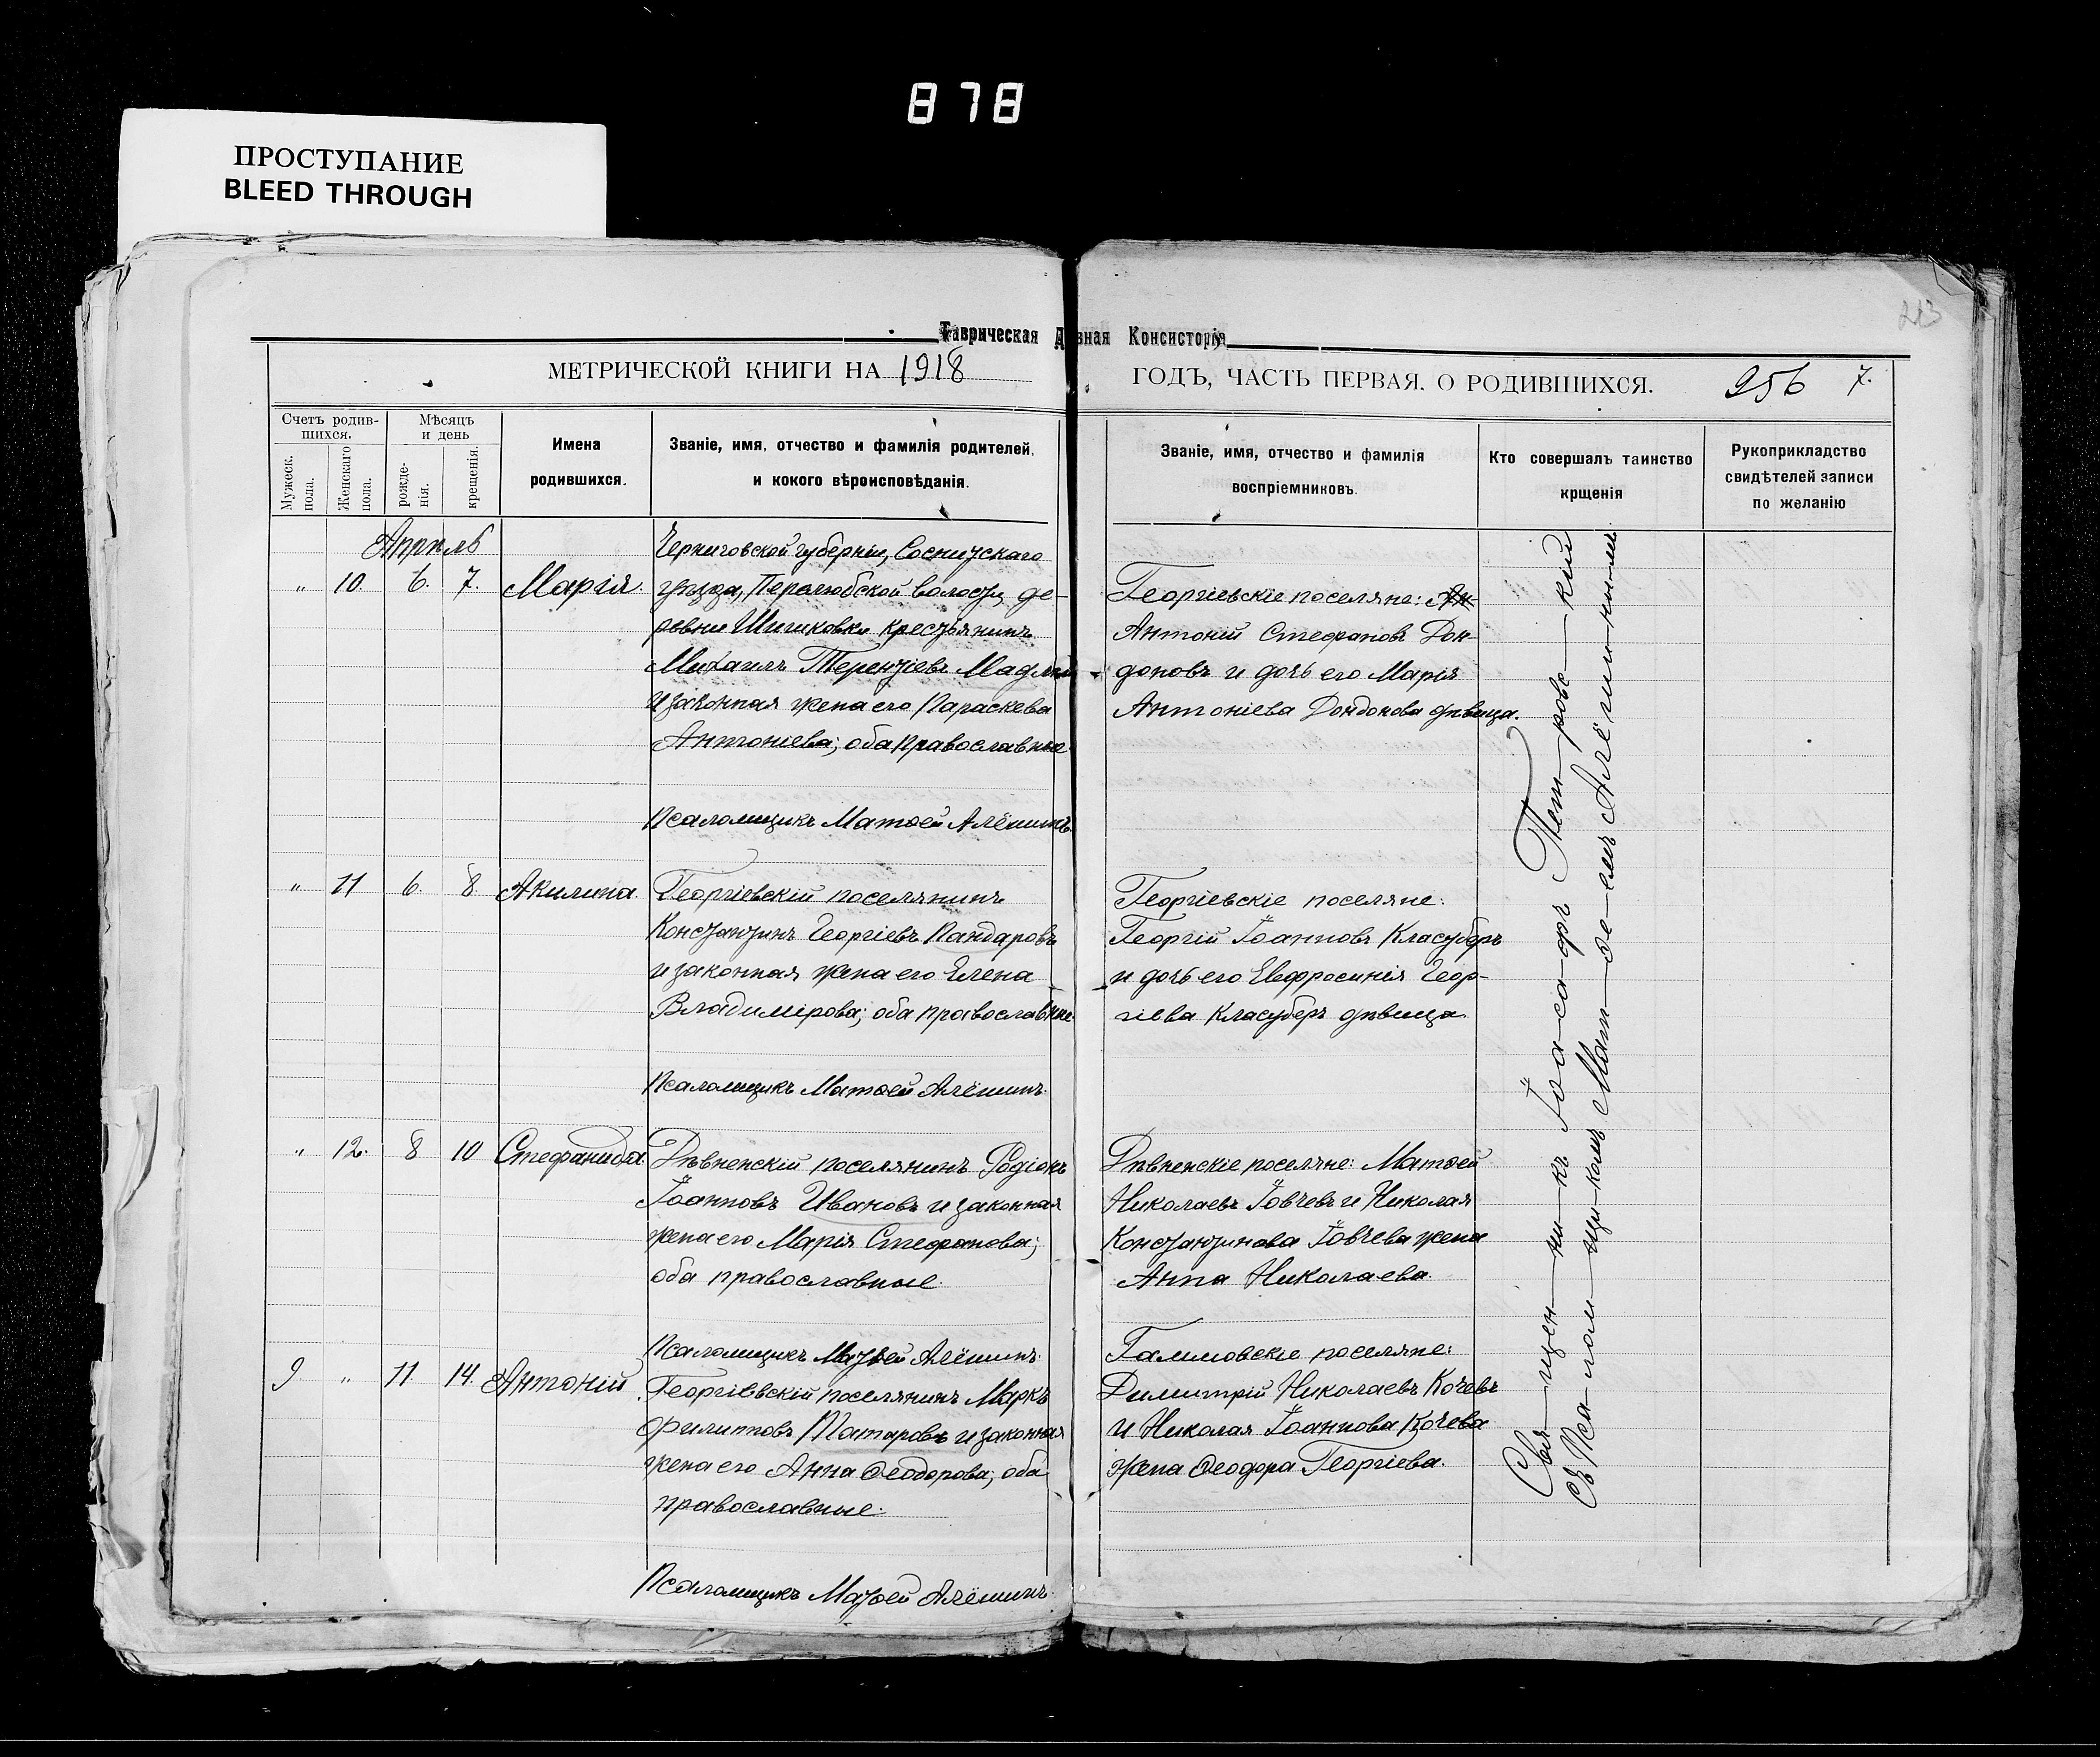 878
ПРОСТУПАНИЕ
BLEED THROUGH
213
Таврическая Д вная Консисторія
МЕТРИЧЕСКОЙ КНИГИ НА 1918
ГОДЪ, ЧАСТЬ ПЕРВАЯ. О РОДИВШИХСЯ. 956 7.
Счетъ родив-
шихся.
Мужеск.
пола.
Женскаго
пола.
Мѣсяцъ
и день
рожде-
нія.
крещенія.
Имена
родившихся.
Званіе, имя, отчество и фамилія родителей,
и кокого вѣроисповѣданія.
Званіе, имя, отчество и фамилія
воспріемниковъ.
Кто совершалъ таинство
крщенія
Рукоприкладство
свидѣтелей записи
по желанію
Апрѣль
„ 10. 6. 7. Марія.
Черниговской губерніи, Сосницскаго
уѣзда, Перелюбской волости, де-
ревни Шишковки крестьянинъ
Михаилъ Терентіевъ
и законная жена его Параскева
Антоніева; оба православные.
Псаломщикъ Матѳей Алёшинъ.
Георгіевскіе поселяне: Ан
Антоній Стефановъ Дон-
доковъ и дочь его Марія
Антоніева Дондокова дѣвица.
„ 11 6. 8. Акилина.
Георгіевскій поселянинъ
Константинъ Георгіевъ Пандаровъ
и законная жена его Елена
Владимірова; оба православные.
Псаломщикъ Матѳей Алёшинъ.
Георгіевскіе поселяне:
Георгій Іоанновъ Класуберъ
и дочь его Евфросинія Геор-
гіева Класуберъ дѣвица.
„ 12. 8 10 Стефанида
Дѣвненскій поселянинъ Родіонъ
Іоанновъ Ивановъ и законная
жена его Марія Стефанова;
оба православные.
Псаломщикъ Матѳей Алёшинъ.
Дѣвненскіе поселяне: Матѳей
Николаевъ Іовчевъ и Николая
Константинова Іовчева жена
Анна Николаева.
9 „ 11 14. Антоній
Георгіевскій поселянинъ Маркъ
Филиповъ Татаровъ и законная
жена его Анна Ѳеодорова; оба
православные.
Псаломщикъ Матѳей Алёшинъ.
Галимовскіе поселяне:
Димитрій Николаевъ Кочевъ
и Николая Іоаннова Кочева
жена Ѳеодора Георгіева.
Свя-щен-ни-къ Іоа-са-фъ Пет-ров-с-кій
съ Пса-лом-щи-комъ Мат-ѳе-емъ Алё-ши-ны-мъ